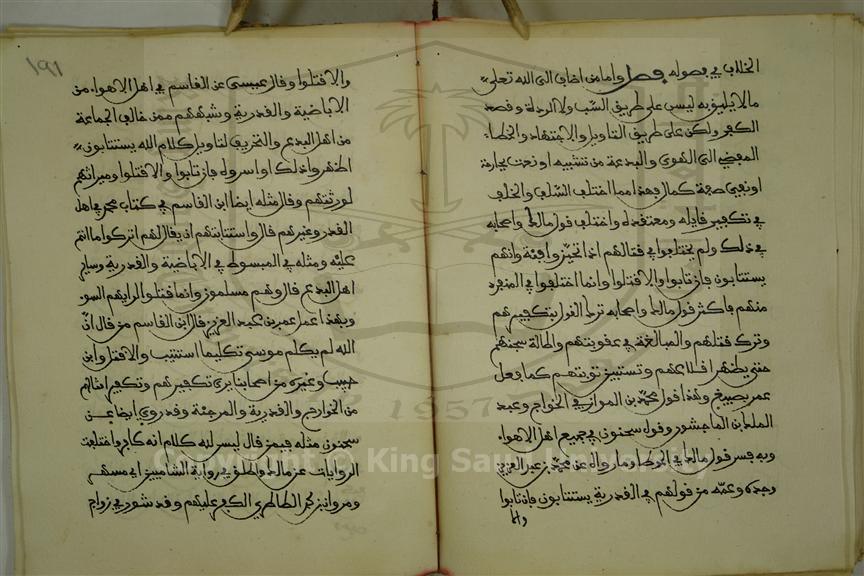 الخلاف في فصوله فصل واما من اضاف الى الله تعلى
ما لا يليق به ليس على طريق السب ولا الردة وقصد
الكفر ولكن على طريق التاويل والاجتهاد والخطا
المفضي الى الهوى والبدعة من تشبيه او نعت بجارحة
او نفي صفة كمال فهذا مما اختلف السلف والخلف
في تكفير قايله ومعتقده واختلف قول مالك واصحابه
في ذلك ولم يختلفوا في قتالهم اذا تحيزوا فئة وانهم
يستتابون فان تابوا والا قتلوا وانما اختلفوا في المنفرد
منهم فاكثر قول مالك واصحابه ترك القول بتكفيرهم
وترك قتلهم والمبالغة في عقوبتهم واطالة سجنهم
حتى يظهر اقلاعهم وتستبين توبتهم كما فعل
عمر بصبيغ وهذا قول محمد بن المواز في الخوارج وعبد
الملك ابن الماجشون وقول سحنون في جميع اهل الاهواء
وبه فسر قول مالك في الموطا وما رواه عن عمر بن عبد العزيز
وجده وعمه من قولهم في القدرية يستتابون فان تابوا
والا
١٩١
والا قتلوا وقال عيسى عن القاسم في اهل الاهواء من
الاباضية والقدرية وشبههم ممن خالف الجماعة
من اهل البدع والتحريف لتاويل كلام الله يستتابون
اظهروا ذلك او اسروه فان تابوا والا قتلوا وميراثهم
لورثتهم وقال مثله ايضا ابن القاسم في كتاب محمد في اهل
القدر وغيرهم قال واستتابتهم ان يقال لهم اتركوا ما انتم
عليه ومثله في المبسوط في الاباضية والقدرية وساير
اهل البدع قال وهم مسلمون وانما قتلوا لرايهم السوء
وبهذا عمل عمر بن عبد العزيز قال ابن القاسم من قال ان
الله لم يكلم موسى تكليما استتيب والا قتل وابن
حبيب وغيره من اصحابنا يرى تكفيرهم وتكفير امثالهم
من الخوارج والقدرية والمرجئة وقد روي ايضا عن
سحنون مثله فيمن قال ليس لله كلام انه كافر واختلفت
الروايات عن مالك فاطلق في رواية الشاميين ابي مسهر
ومروان بن محمد الطاطري الكفر عليهم وقد شور في زواج
© King Saud University
1957